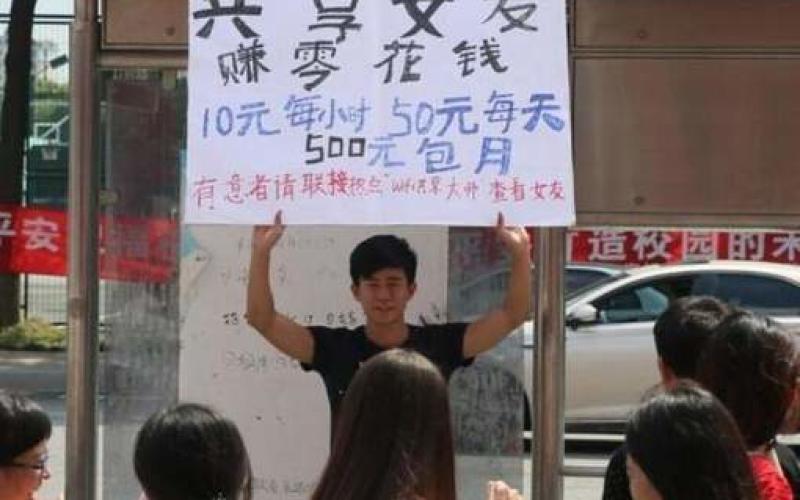 共享女友
赚零花钱
10元每小时 50元每天
500元包月
有意者请联接热点 WiFi共享大师 查看女友
平安
造校园的